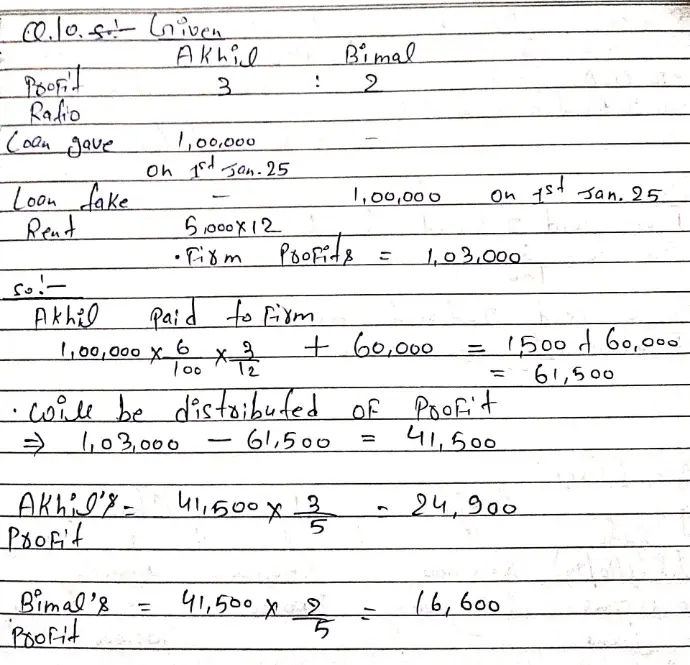 Q.10. sol:- Given
Akhil Bimal
Profit 3 : 2
Ratio
Loan gave 1,00,000 -
on 1st Jan. 25
Loan take - 1,00,000 on 1st Jan. 25
Rent 5,000×12
• Firm Profits = 1,03,000
so:-
Akhil paid to Firm
1,00,000 × 6/100 × 3/12 + 60,000 = 1,500 + 60,000
= 61,500
• will be distributed of Profit
⇒ 1,03,000 - 61,500 = 41,500
Akhil's = 41,500 × 3/5 = 24,900
Profit
Bimal's = 41,500 × 2/5 = 16,600
Profit